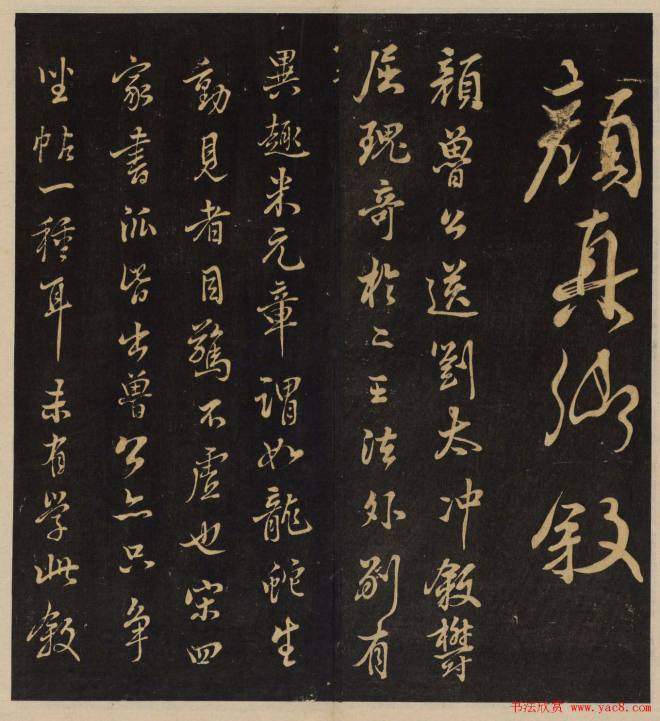 顏真卿敘
顏魯公送劉太冲敘欝
屈瑰奇於二王法外別有
異趣米元章謂如龍蛇生
動見者目驚不虛也宋四
家書派皆出魯公亦只争
坐帖一種耳未有学此敘
书法欣赏 www.yac8.com